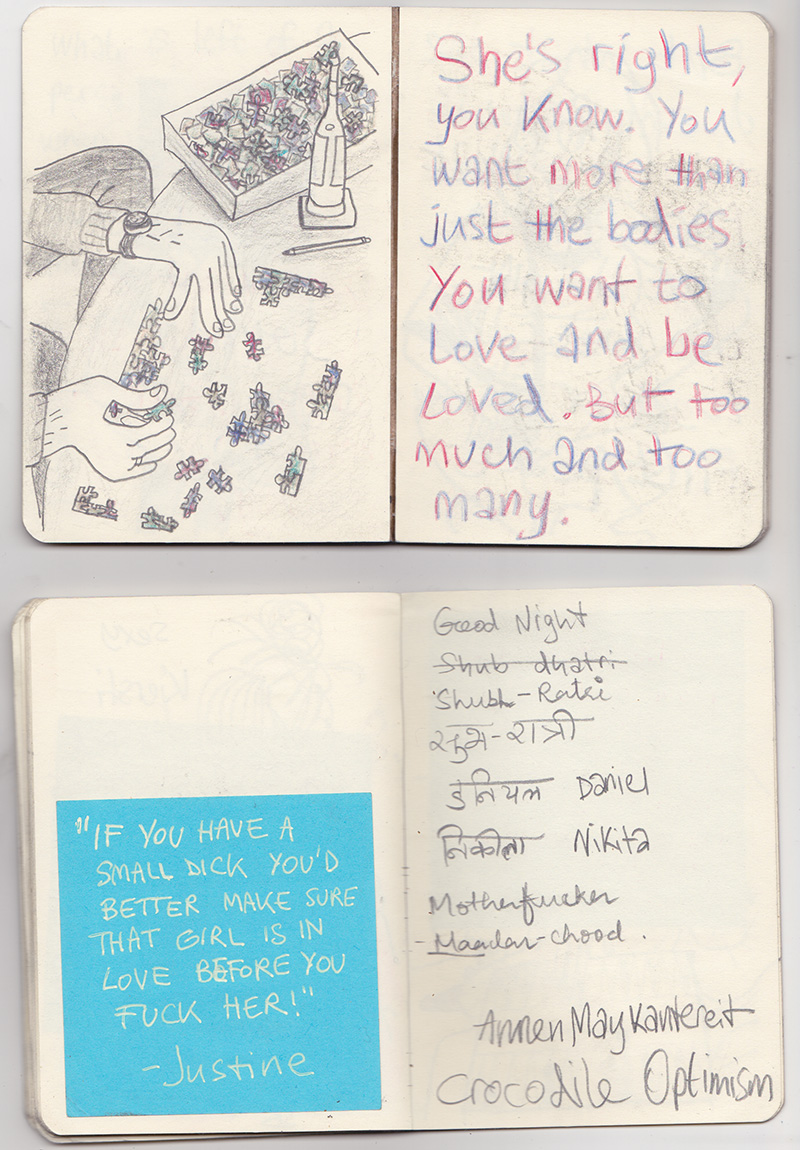 She's right,
you know. You
want more than
just the bodies
You want to
Love and be
Loved. But too
much and too
many.
"IF YOU HAVE A
SMALL DICK YOU'D
BETTER MAKE SURE
THAT GIRL IS IN
LOVE BEFORE YOU
FUCK HER!"
-Justine
Good Night
Shub dhatri
Shubh-Ratri
शुभ-रात्री
डनियल Daniel
निकीता Nikita
Motherfucker
-Maadar-chood.
AnnenMayKantereit
Crocodile Optimism